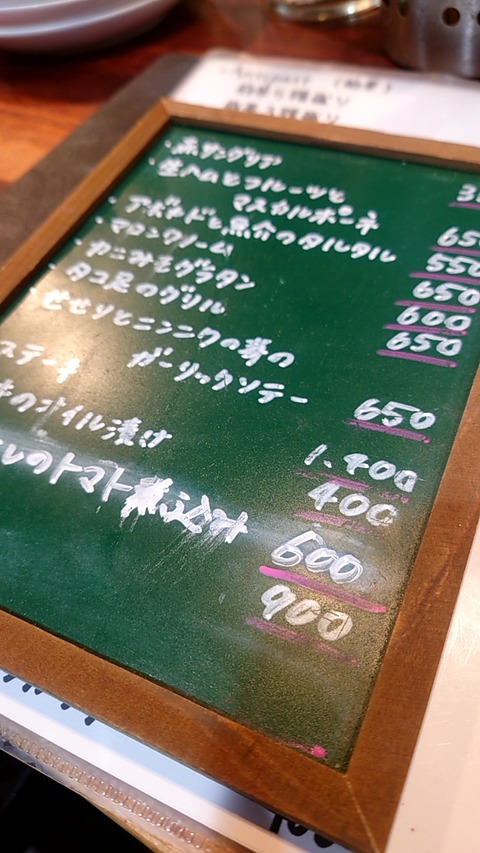 赤サングリア
生ハムとフルーツと
マスカルポーネ
アボカドと魚介のタルタル
マロンクリーム
かにみそグラタン
タコ足のグリル
せせりとニンニクの芽の
ガーリックソテー
ステーキ
キのオイル漬け
のトマト煮込み
650
550
650
600
650
650
1.400
400
600
900